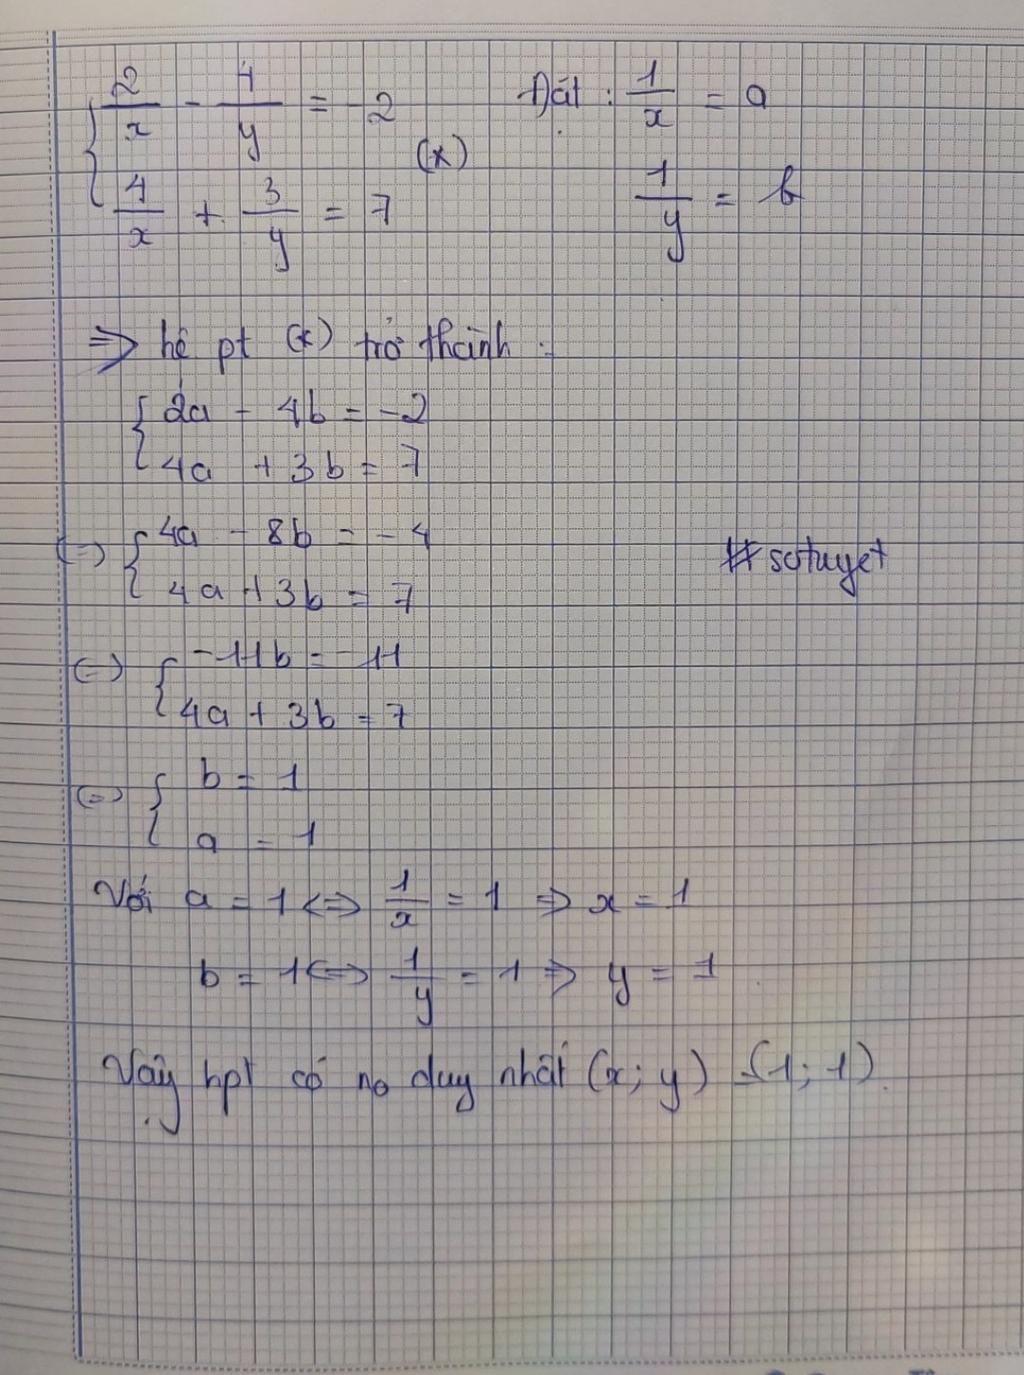 2/x - 4/y = -2 (x)
4/x + 3/y = 7
Đặt : 1/x = a
1/y = b
=> hệ pt (x) trở thành :
{ 2a - 4b = -2
4a + 3b = 7
<=> { 4a - 8b = -4
4a + 3b = 7
#sctuyet
<=> { -11b = -11
4a + 3b = 7
<=> { b = 1
a = 1
Với a = 1 <=> 1/x = 1 => x = 1
b = 1 <=> 1/y = 1 => y = 1
Vậy hpt có no duy nhất (x; y) = (1; 1).